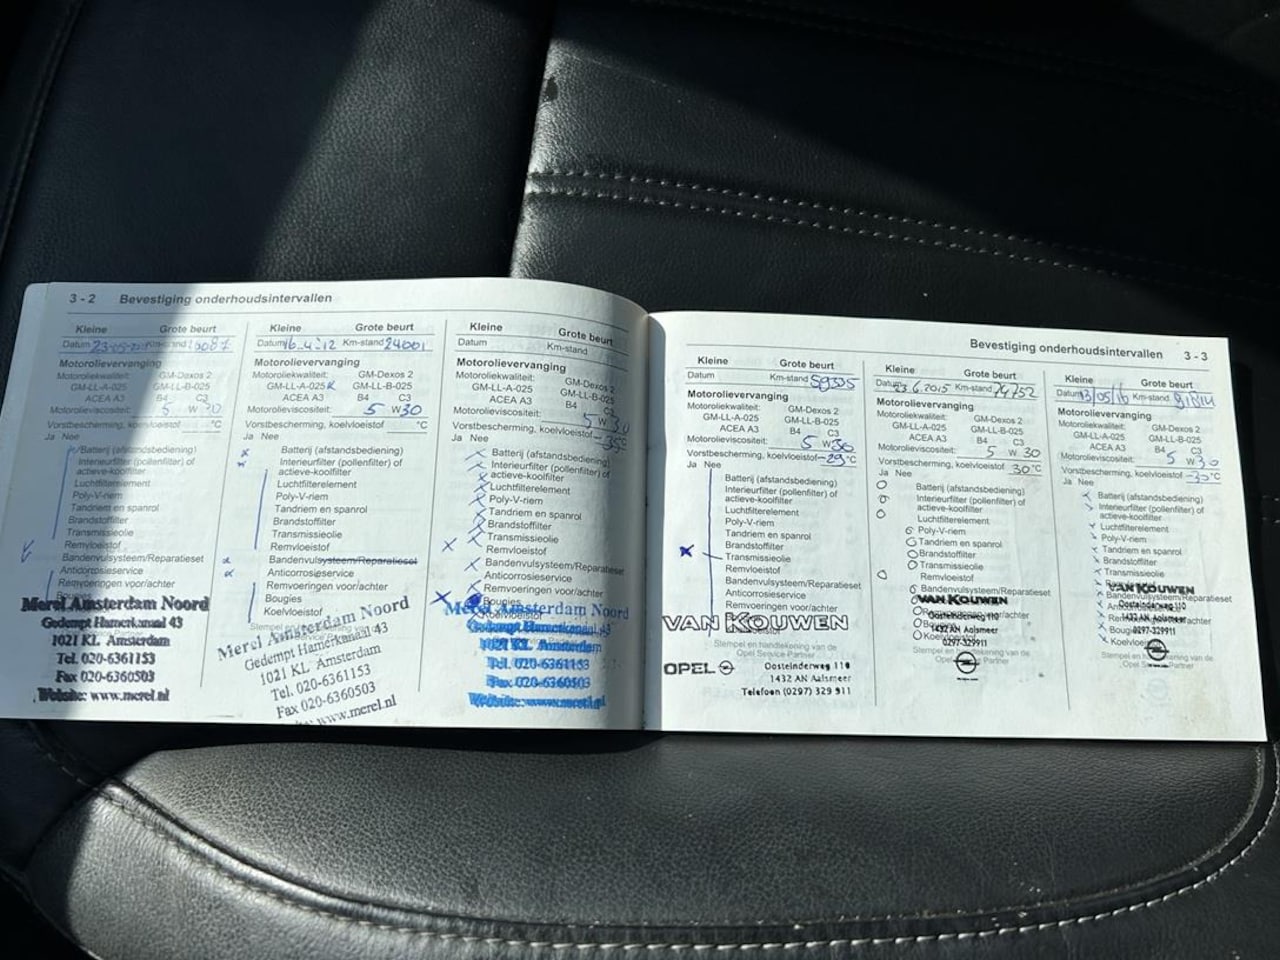 3 - 2 Bevestiging onderhoudsintervallen
Kleine Grote beurt
Datum Km-stand
Motorolievervanging
Motoroliekwaliteit: GM-Dexos 2
GM-LL-A-025 GM-LL-B-025
ACEA A3 B4 C3
Motorolieviscositeit: 5 W 30
Vorstbescherming, koelvloeistof °C
Ja Nee
Batterij (afstandsbediening)
Interieurfilter (pollenfilter) of
actieve-koolfilter
Luchtfilterelement
Poly-V-riem
Tandriem en spanrol
Brandstoffilter
Transmissieolie
Remvloeistof
Bandenvulsysteem/Reparatieset
Anticorrosieservice
Remvoeringen voor/achter
Bougies
Merel Amsterdam Noord
Gedempt Hamerkanaal 43
1021 KL Amsterdam
Tel. 020-6361153
Fax 020-6360503
Website: www.merel.nl
Kleine Grote beurt
Datum 16.4.12 Km-stand 24001
Motorolievervanging
Motoroliekwaliteit: GM-Dexos 2
GM-LL-A-025 GM-LL-B-025
ACEA A3 B4 C3
Motorolieviscositeit: 5 W 30
Vorstbescherming, koelvloeistof °C
Ja Nee
Batterij (afstandsbediening)
Interieurfilter (pollenfilter) of
actieve-koolfilter
Luchtfilterelement
Poly-V-riem
Tandriem en spanrol
Brandstoffilter
Transmissieolie
Remvloeistof
Bandenvulsysteem/Reparatieset
Anticorrosieservice
Remvoeringen voor/achter
Bougies
Koelvloeistof
Merel Amsterdam Noord
Gedempt Hamerkanaal 43
1021 KL Amsterdam
Tel. 020-6361153
Fax 020-6360503
www.merel.nl
Kleine Grote beurt
Datum Km-stand
Motorolievervanging
Motoroliekwaliteit: GM-Dexos 2
GM-LL-A-025 GM-LL-B-025
ACEA A3 B4 C3
Motorolieviscositeit: 5 W 30
Vorstbescherming, koelvloeistof -35°C
Ja Nee
Batterij (afstandsbediening)
Interieurfilter (pollenfilter) of
actieve-koolfilter
Luchtfilterelement
Poly-V-riem
Tandriem en spanrol
Brandstoffilter
Transmissieolie
Remvloeistof
Bandenvulsysteem/Reparatieset
Anticorrosieservice
Remvoeringen voor/achter
Bougies
Koelvloeistof
Merel Amsterdam Noord
Gedempt Hamerkanaal 43
1021 KL Amsterdam
Tel. 020-6361153
Fax 020-6360503
Website: www.merel.nl
Bevestiging onderhoudsintervallen 3 - 3
Kleine Grote beurt
Datum Km-stand 59355
Motorolievervanging
Motoroliekwaliteit: GM-Dexos 2
GM-LL-A-025 GM-LL-B-025
ACEA A3 B4 C3
Motorolieviscositeit: 5 W 30
Vorstbescherming, koelvloeistof -29°C
Ja Nee
Batterij (afstandsbediening)
Interieurfilter (pollenfilter) of
actieve-koolfilter
Luchtfilterelement
Poly-V-riem
Tandriem en spanrol
Brandstoffilter
Transmissieolie
Remvloeistof
Bandenvulsysteem/Reparatieset
Anticorrosieservice
Remvoeringen voor/achter
VAN KOUWEN
Stempel en handtekening van de
Opel Service Partner
OPEL
Oosteinderweg 110
1432 AN Aalsmeer
Telefoon (0297) 329 911
Kleine Grote beurt
Datum 23.6.2015 Km-stand 74752
Motorolievervanging
Motoroliekwaliteit: GM-Dexos 2
GM-LL-A-025 GM-LL-B-025
ACEA A3 B4 C3
Motorolieviscositeit: 5 W 30
Vorstbescherming, koelvloeistof 30°C
Ja Nee
Batterij (afstandsbediening)
Interieurfilter (pollenfilter) of
actieve-koolfilter
Luchtfilterelement
Poly-V-riem
Tandriem en spanrol
Brandstoffilter
Transmissieolie
Remvloeistof
Bandenvulsysteem/Reparatieset
VAN KOUWEN
Oosteinderweg 110
1432 AN Aalsmeer
0297-329911
Koelvloeistof
Stempel en handtekening van de
Opel Service Partner
Kleine Grote beurt
Datum 13/05/16 Km-stand
Motorolievervanging
Motoroliekwaliteit: GM-Dexos 2
GM-LL-A-025 GM-LL-B-025
ACEA A3 B4 C3
Motorolieviscositeit: 5 W 30
Vorstbescherming, koelvloeistof -35°C
Ja Nee
Batterij (afstandsbediening)
Interieurfilter (pollenfilter) of
actieve-koolfilter
Luchtfilterelement
Poly-V-riem
Tandriem en spanrol
Brandstoffilter
Transmissieolie
VAN KOUWEN
Bandenvulsysteem/Reparatieset
Oosteinderweg 110
1432 AN Aalsmeer
0297-329911
Koelvloeistof
Stempel en handtekening van de
Opel Service Partner